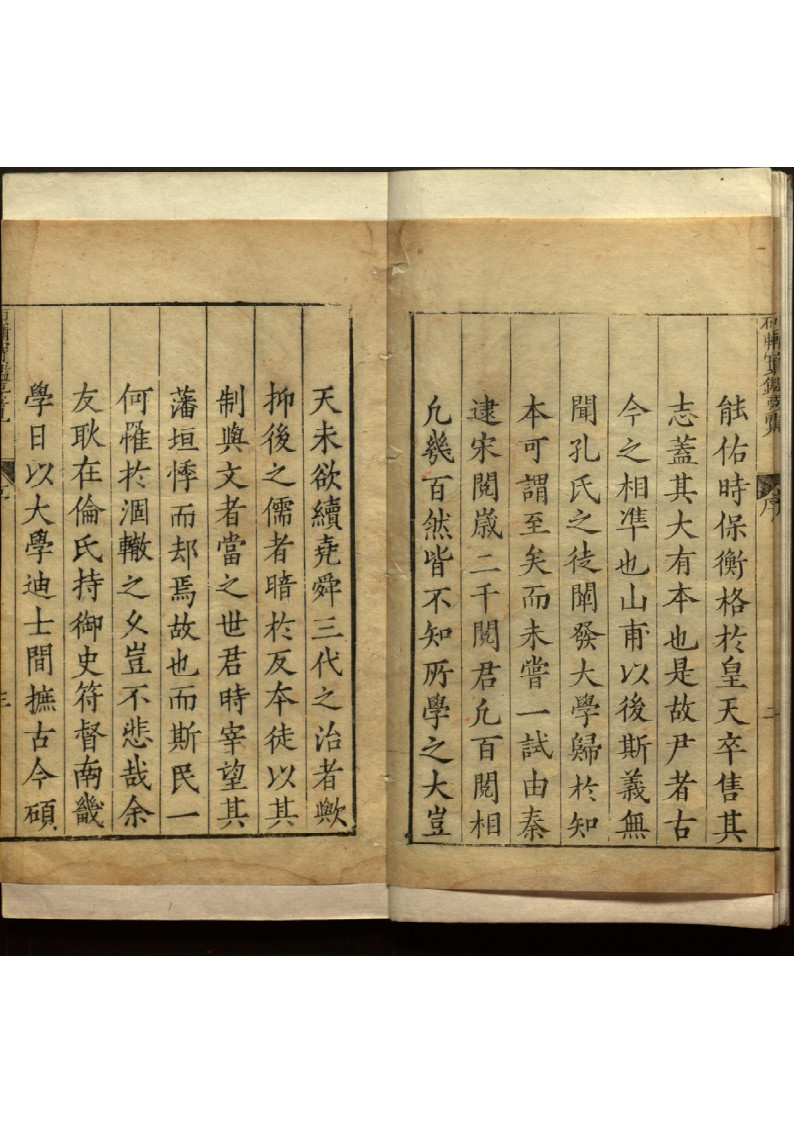 序
二
能佑時保衡格於皇天卒售其
志蓋其大有本也是故尹者古
今之相凖也山甫以後斯義無
聞孔氏之徒闡發大學歸於知
本可謂至矣而未嘗一試由秦
逮宋閱嵗二千閱君凢百閱相
凢幾百然皆不知所學之大豈
天未欲續堯舜三代之治者歟
抑後之儒者暗於反本徒以其
制與文者當之世君時宰望其
藩垣悸而却焉故也而斯民一
何惟於涸轍之久豈不悲哉余
友耿在倫氏持御史符督南畿
學日以大學迪士間摭古今碩
三